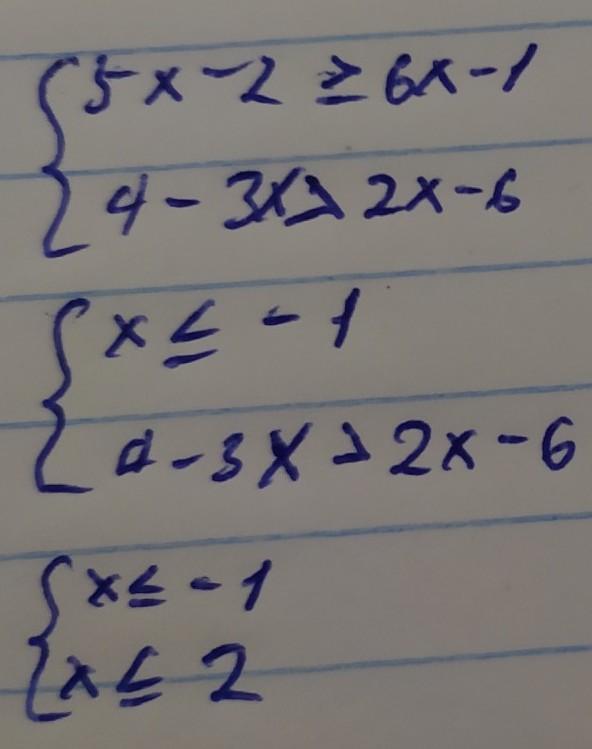 5x - 2 ≥ 6x - 1
4 - 3x > 2x - 6
x ≤ - 1
4 - 3x > 2x - 6
x ≤ - 1
x ≤ 2